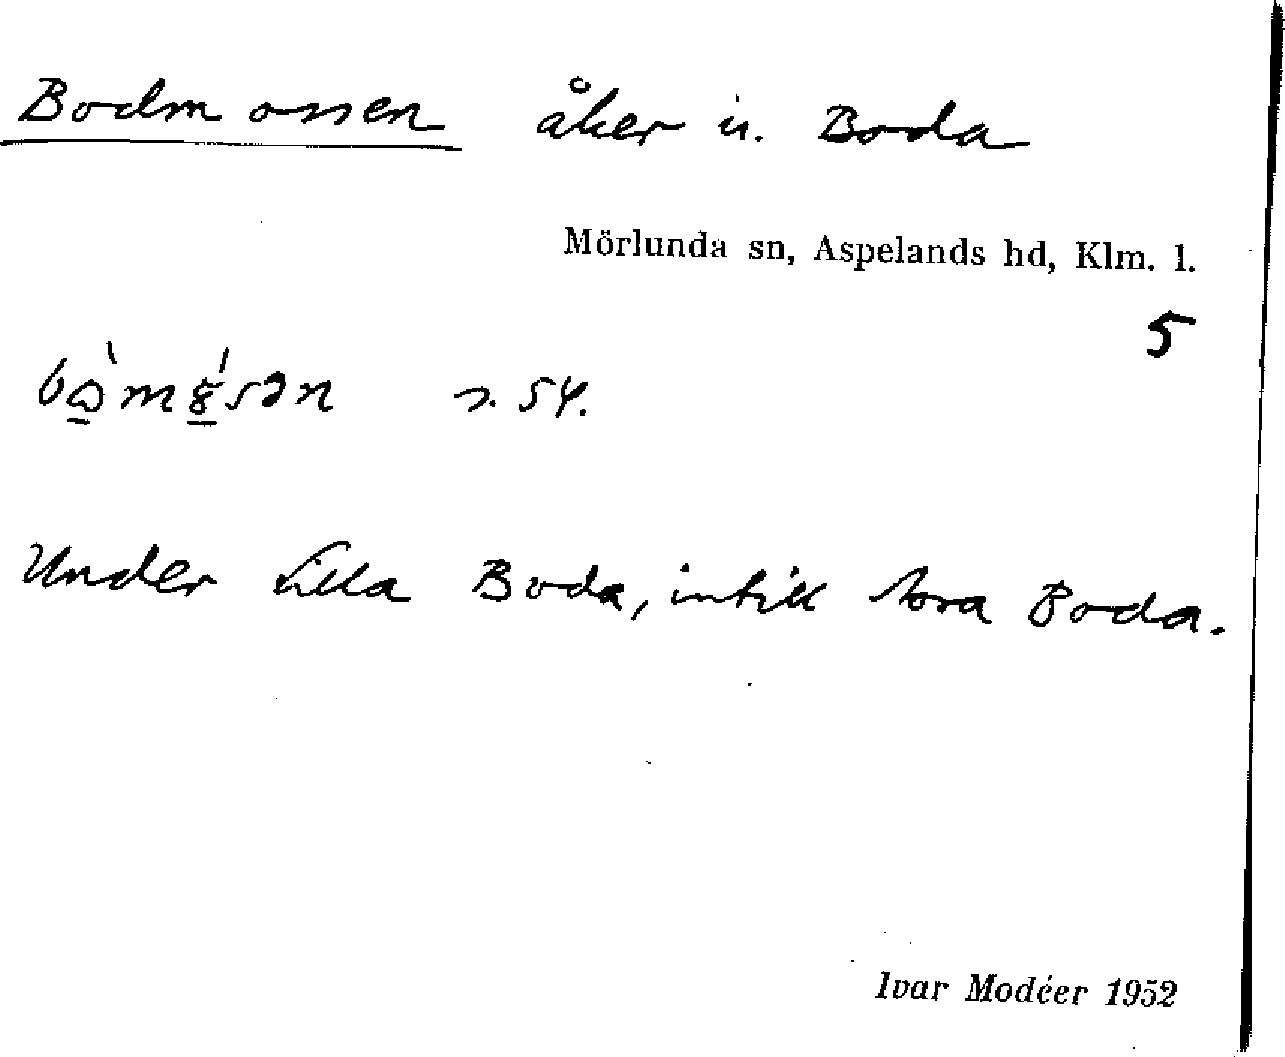 Bodmossen åker u. Boda
Mörlunda sn, Aspelands hd, Klm. l.
5
s. 54.
Under Lilla Boda, intill Stora Boda.
Ivar Modéer 1952